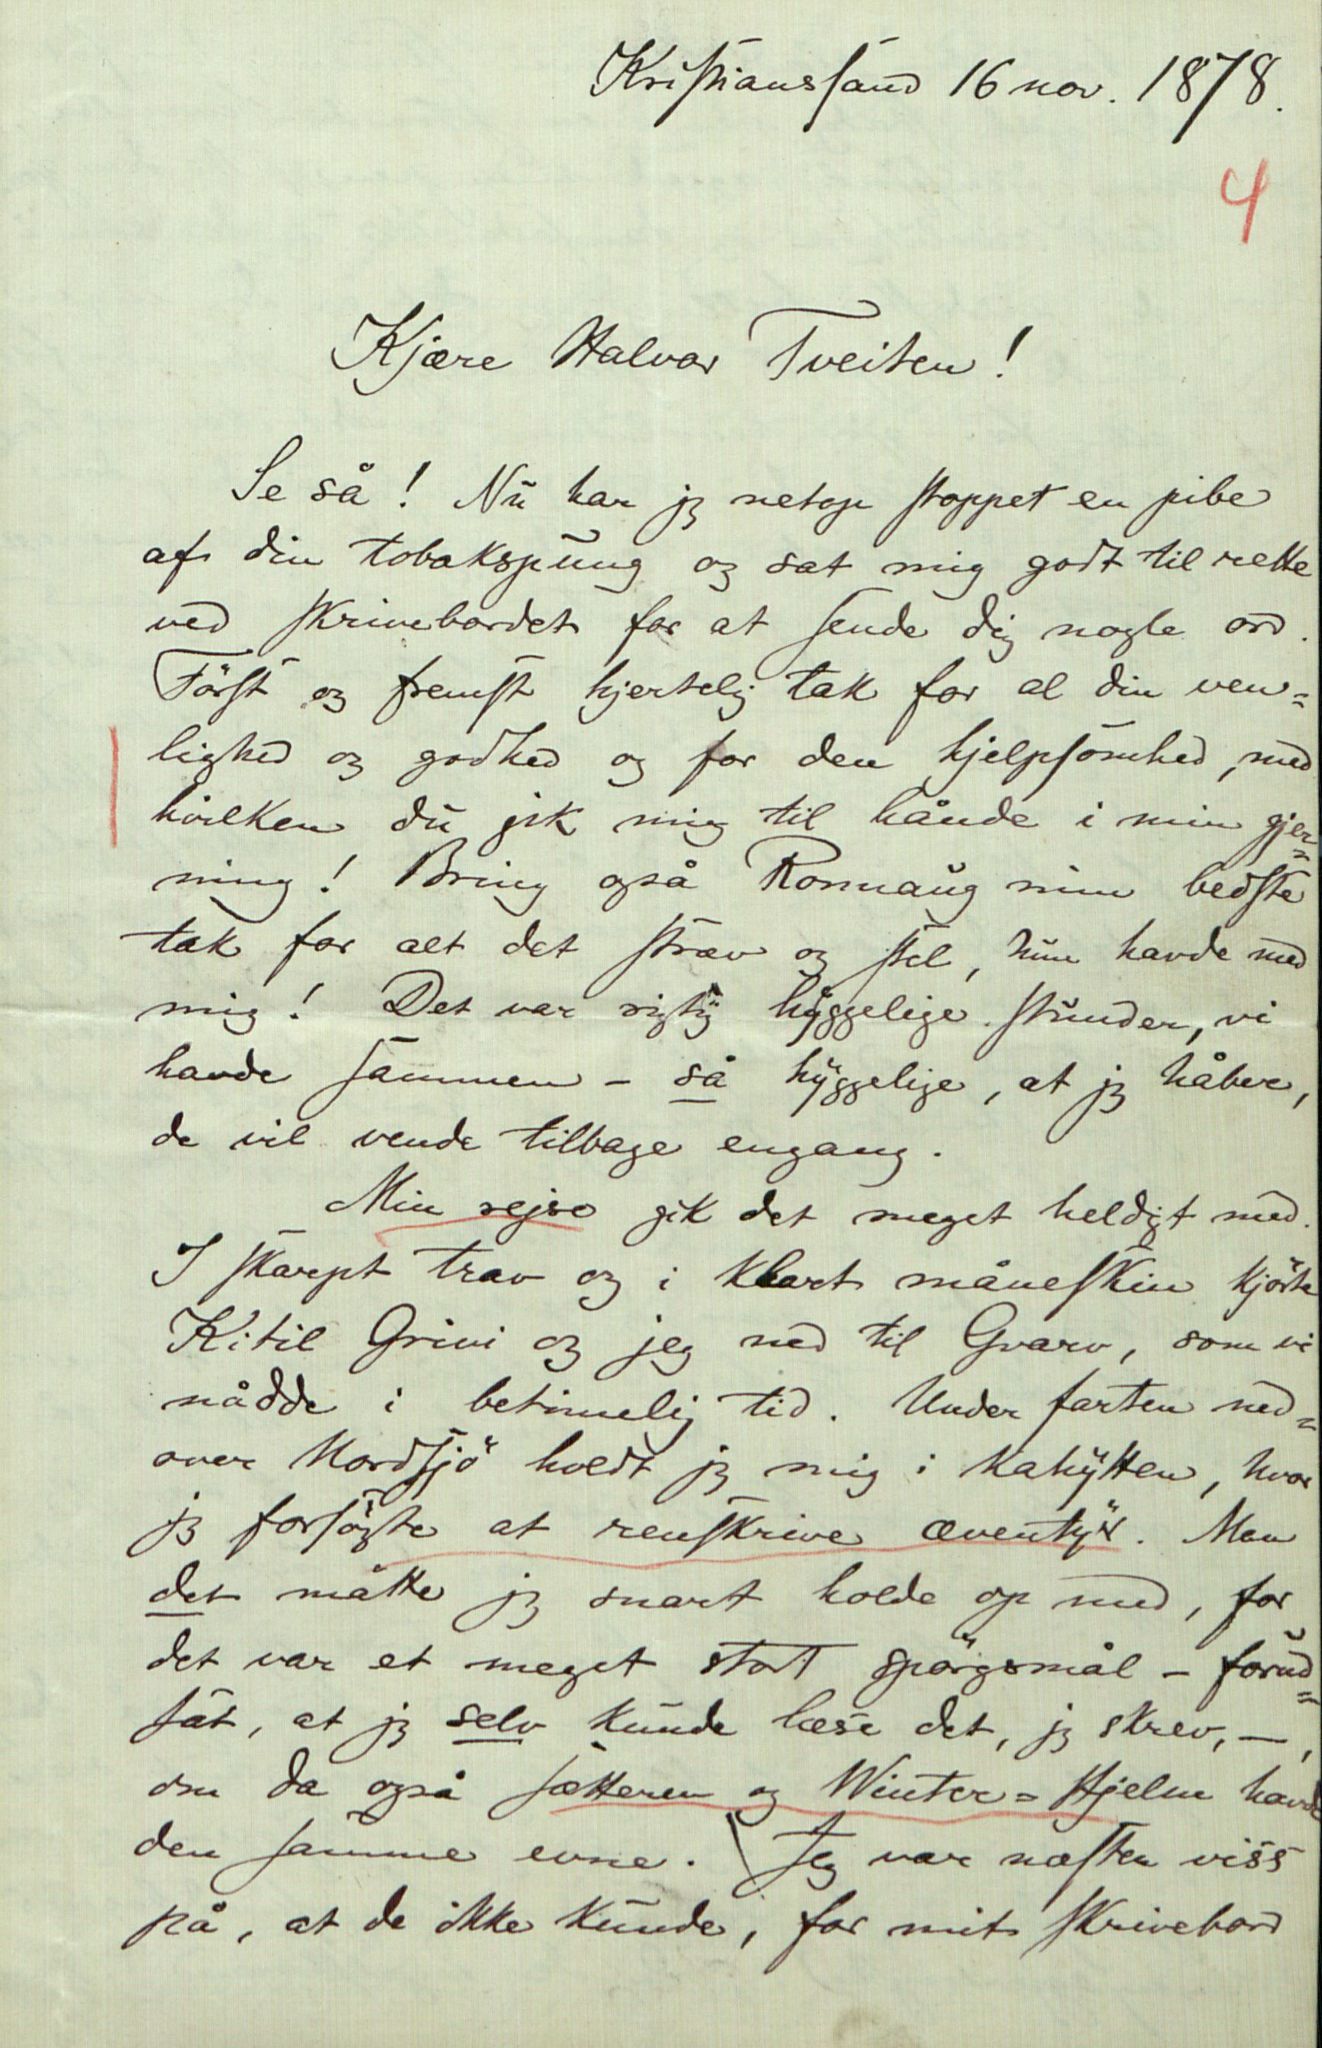 Kristianssand 16 nov. 1878.
4
Kjære Halvor Tveiten!
Se så! Nu har jeg netop stoppet en pibe
af din tobakspung og sat mig godt til rette
ved skrivebordet for at sende dig nogle ord.
Først og fremst hjertelig tak for al din ven=
lighed og godhed og for den hjelpsomhed, med
hvilken du gik mig til hånde i min gjer=
ning! Bring også Ronnaug min bedste
tak for alt det stræv og stel, hun havde med
mig! Det var rigtig hyggelige stunder, vi
havde sammen – så hyggelige, at jeg håber,
de vil vende tilbage engang.
Min rejse gik det meget heldigt med.
I skarpt trav og i klart måneskin kjørte
Kitil Grivi og jeg ned til Gvarv, som vi
nådde i betimelig tid. Under farten ned=
over Nordsjø holdt jeg mig i kahytten, hvor
jeg forsøgte at renskrive æventyr. Men
det måtte jeg snart holde op med, for
det var et meget stort spørgsmål – forud=
sat, at jeg selv kunde læse det, jeg skrev, –,
om da også sætteren og Winter=Hjelm havde
den samme evne. Jeg var næsten viss
på, at de ikke kunde, for mit skrivebord